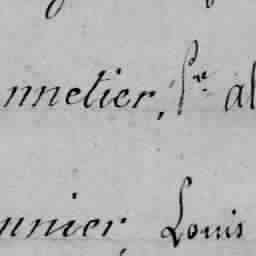 nnetier, Sr. al
nnier, Louis